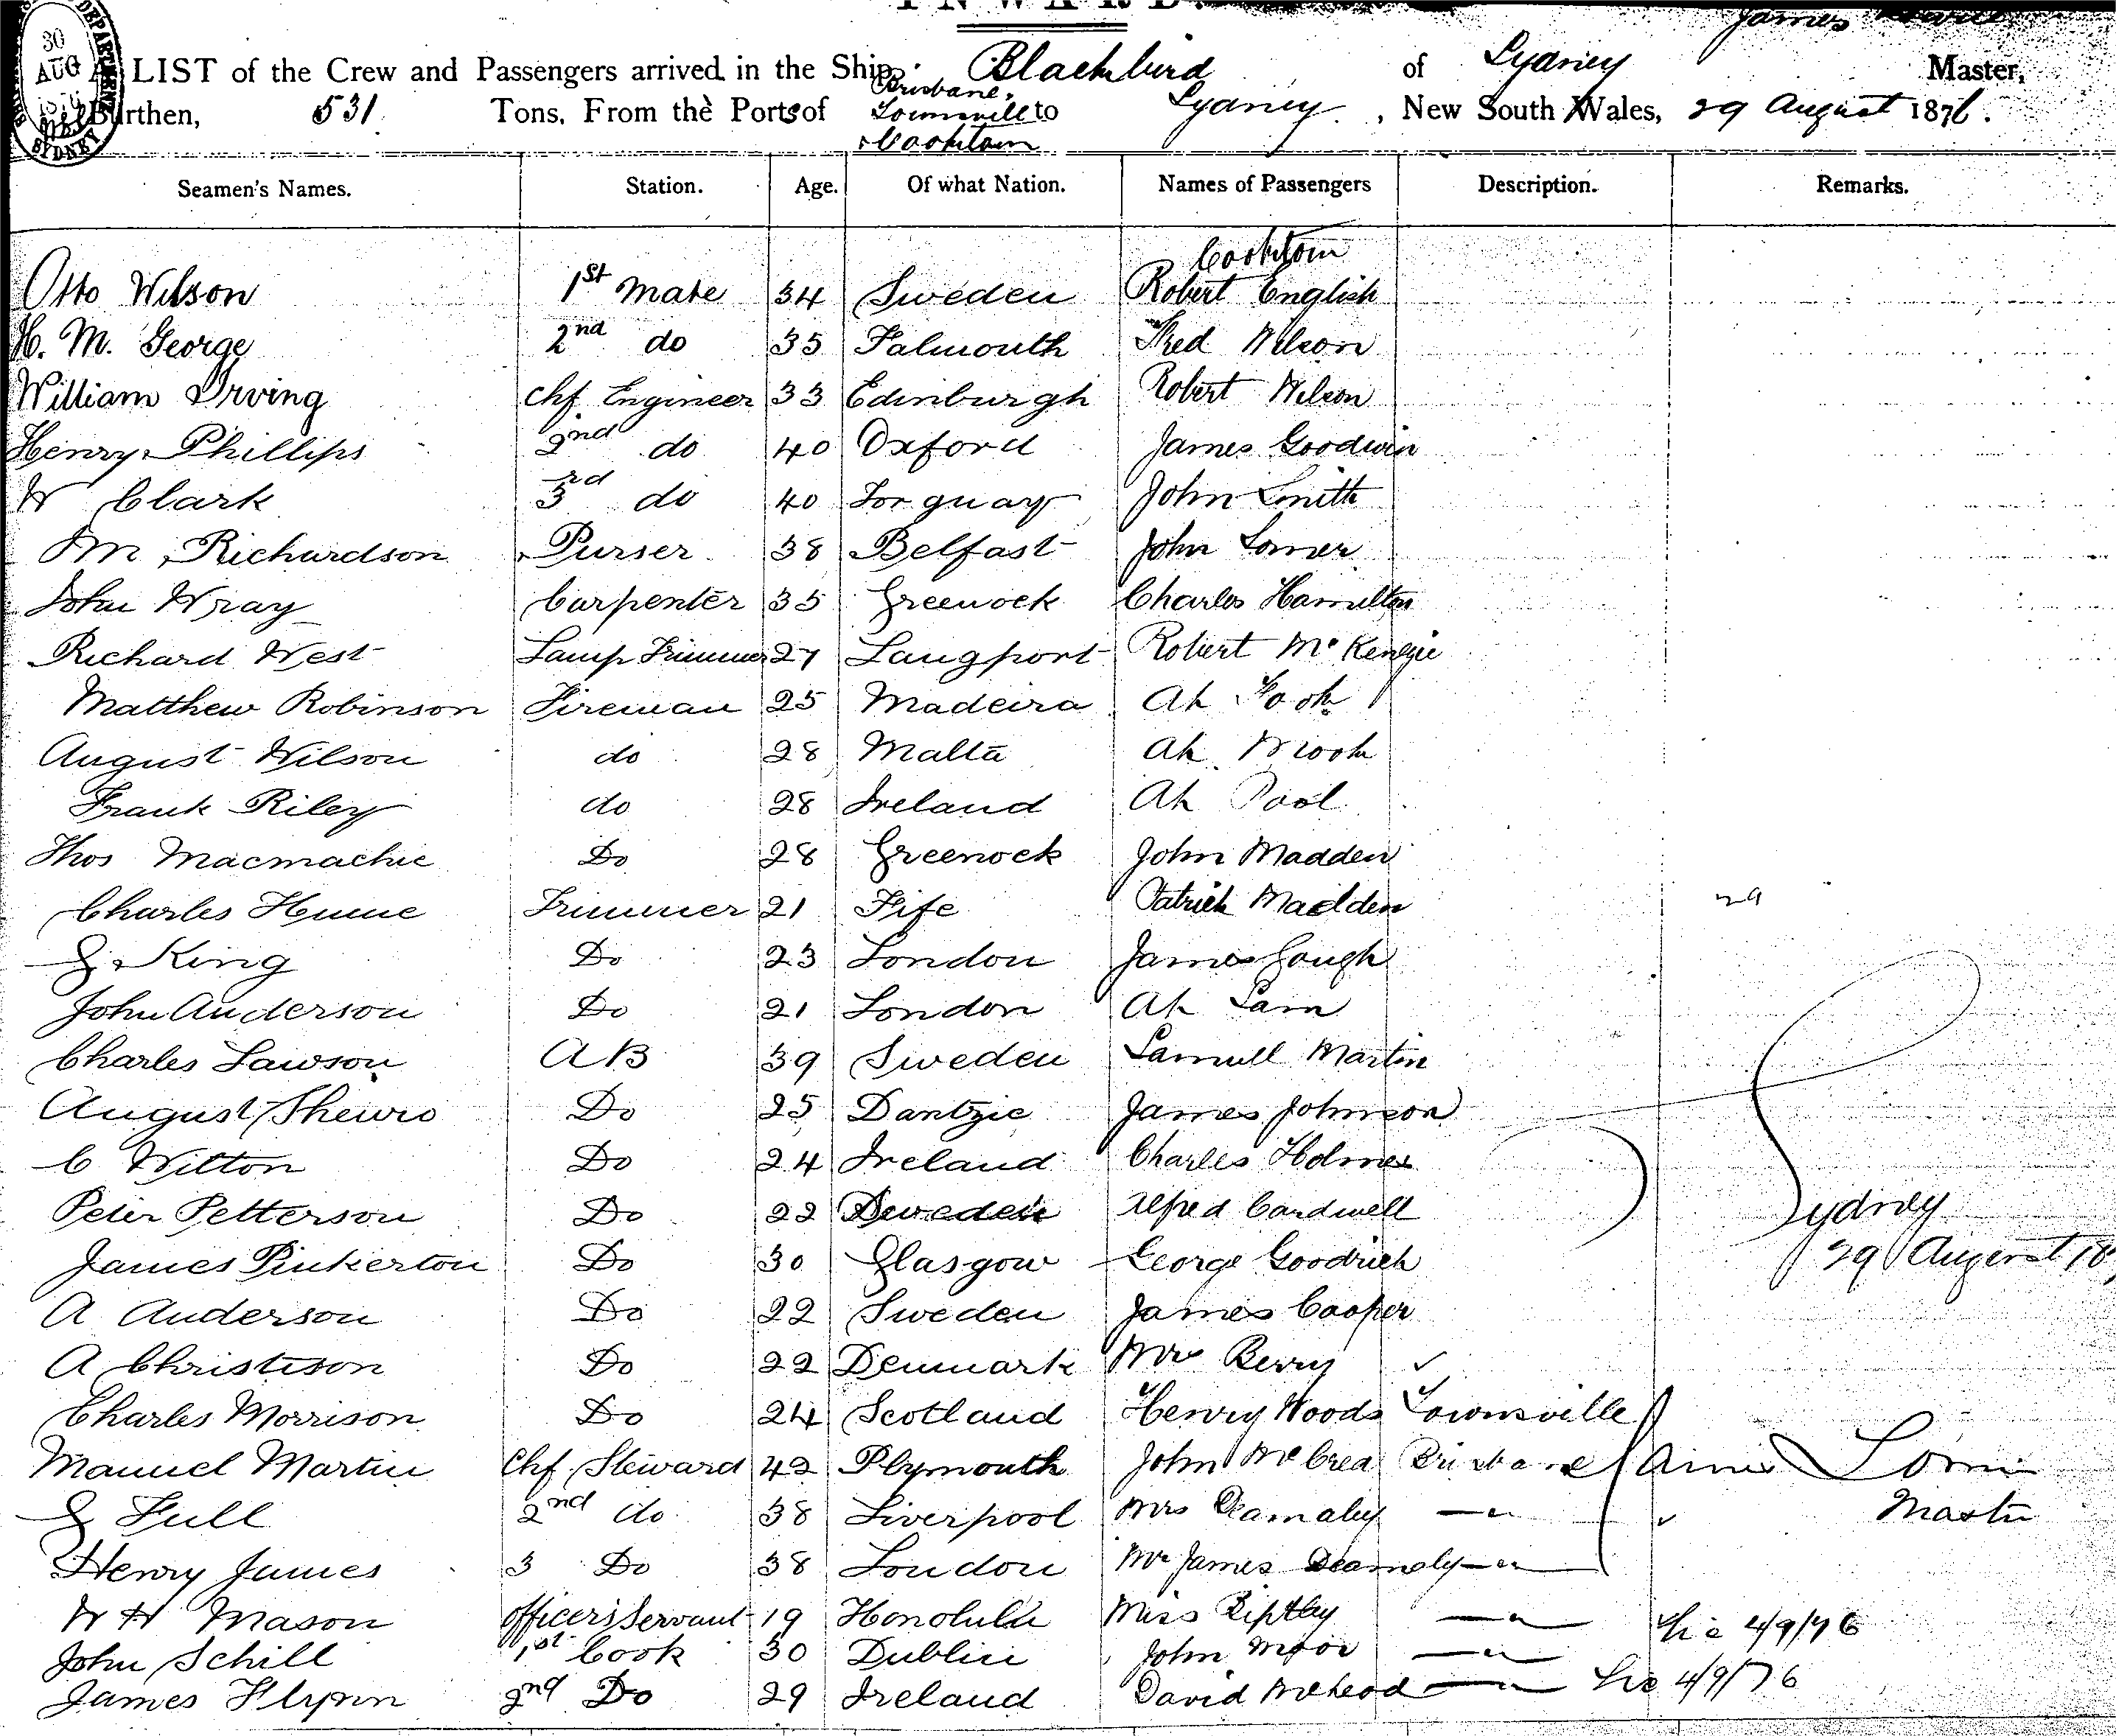 INWARD.
James
30
AUG
SYDNEY
A LIST of the Crew and Passengers arrived in the Ship Blackbird of Sydney Master,
Brisbane,
Burthen, 531 Tons, From the Ports of Townsville to Sydney, New South Wales, 29 August 1876.
& Cooktown
Seamen's Names. Station. Age. Of what Nation. Names of Passengers Description. Remarks.
Cooktown
Otto Wilson 1st Mate 34 Sweden Robert English
H. M. George 2nd do 35 Falmouth Fred Wilson
William Irving Chf Engineer 33 Edinburgh Robert Wilson
Henry Phillips 2nd do 40 Oxford James Goodwin
W Clark 3rd do 40 Torquay John Smith
Richardson Purser 38 Belfast John
John Wray Carpenter 35 Greenock Charles Hamilton
Richard West Lamp Trimmer 27 Langport Robert McKenzie
Matthew Robinson Fireman 25 Madeira Ah
August Wilson do 28 Malta Ah
Frank Riley do 28 Ireland Ah Pool
Thos Macmachie Do 28 Greenock John Madden
Charles Hume Trimmer 21 Fife Patrick Madden 29
King Do 23 London James Gough
John Anderson Do 21 London Ah Sam
Charles Lawson AB 39 Sweden Samuell Martin
August Thewis Do 25 Dantzic James Johnson
C Wilton Do 24 Ireland Charles Holmes
Peter Petterson Do 22 Sweden Alfred Cardwell Sydney
James Pinkerton Do 30 Glasgow George Goodrich 29 August 18
A Anderson Do 22 Sweden James Cooper
A Christison Do 22 Denmark Mr Berry ✓
Charles Morrison Do 24 Scotland Henry Woods Townsville
Manuel Martin Chf Steward 42 Plymouth John McCrea Brisbane
Full 2nd do 38 Liverpool Mrs Master
Henry James 3 Do 38 London Mr James
W H Mason Officers Servant 19 Honolulu Miss 4/9/76
John Schill 1st Cook 30 Dublin John Moor
James Flynn 2nd Do 29 Ireland David McLeod 4/9/76